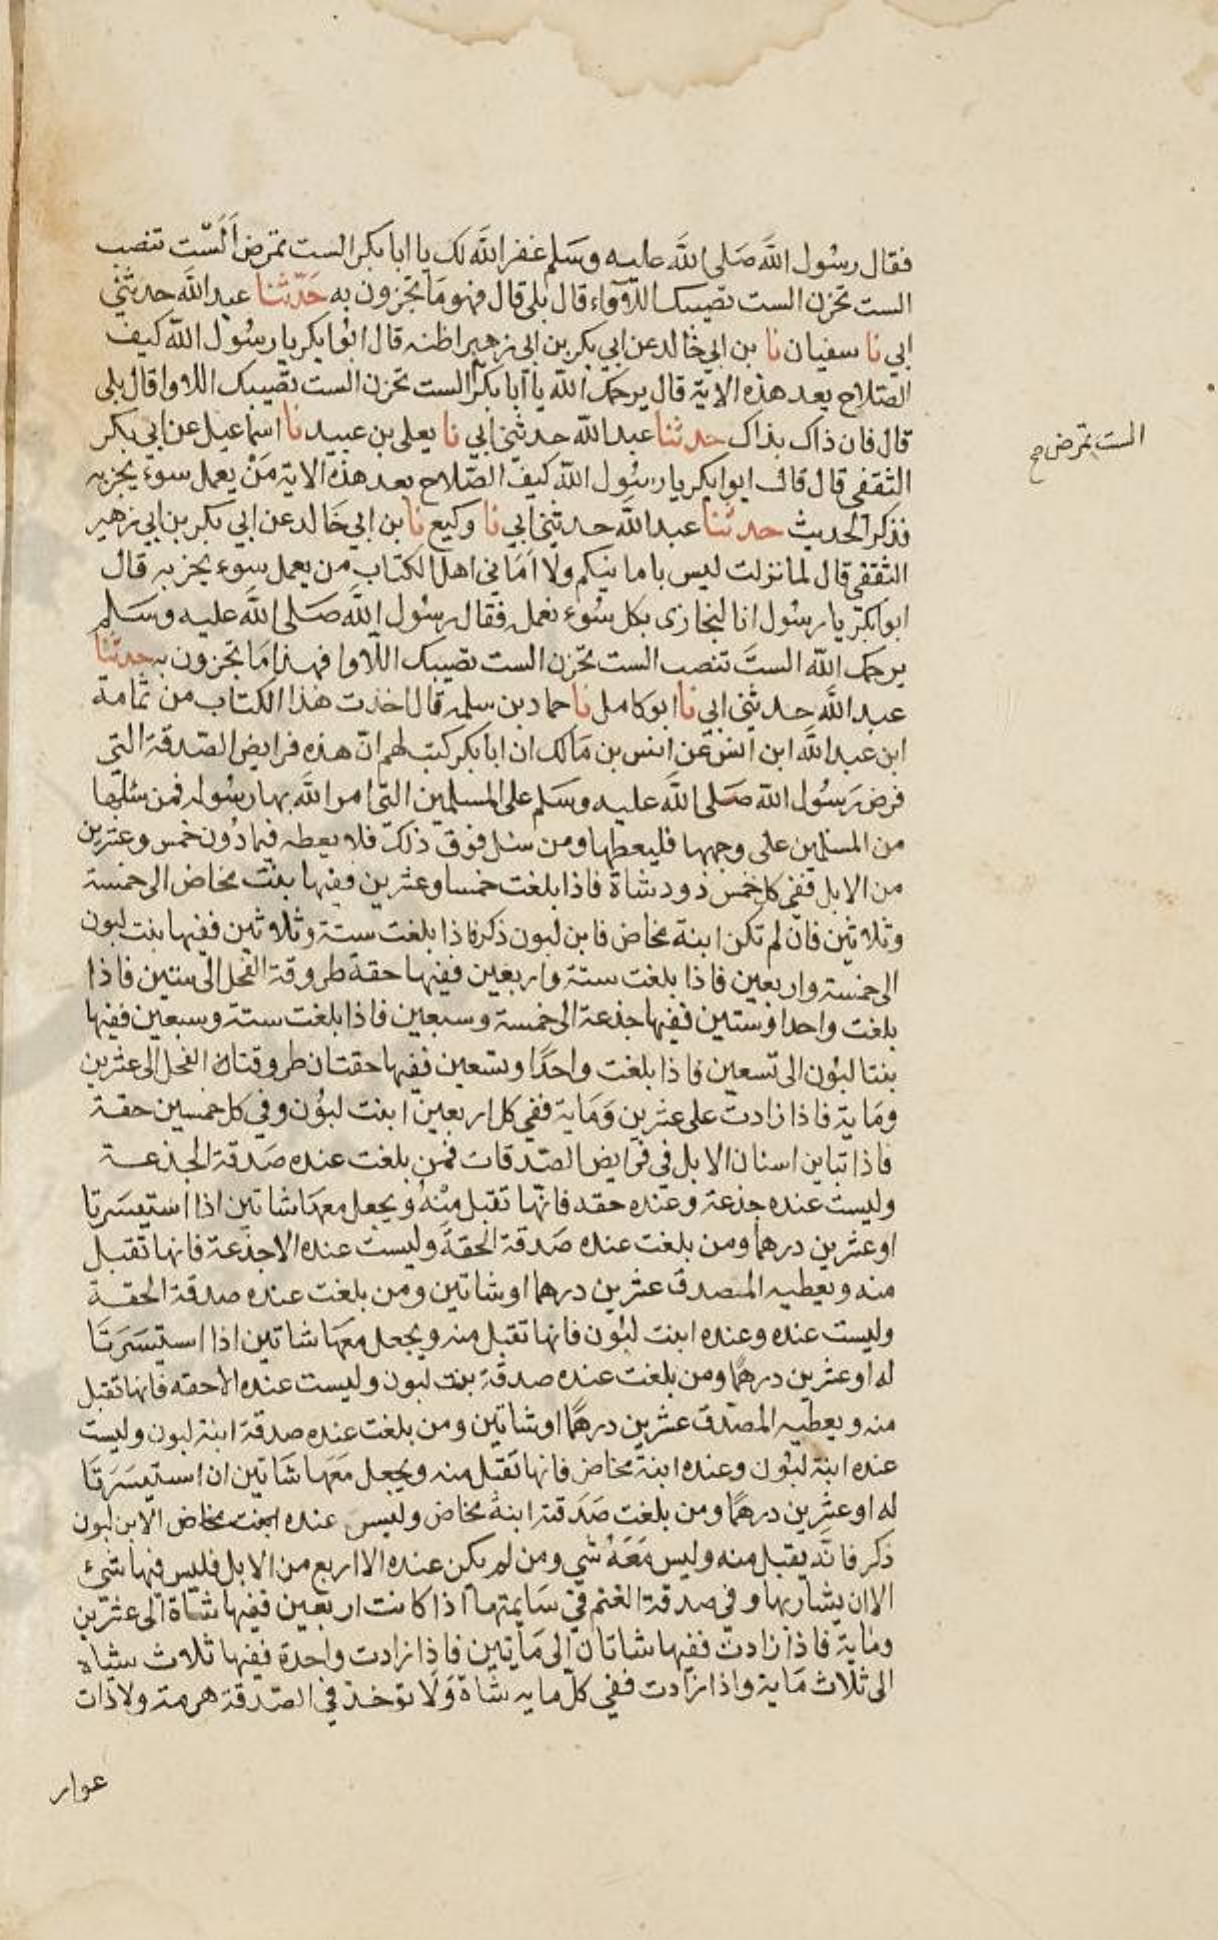 فقال رسول الله صلى الله عليه وسلم غفر الله لك يا ابا بكر الست تمرض ألست تنصب
الست تحزن الست تصيبك اللأواء قال بلى قال فهو ما تجزون به حدثنا عبد الله حدثني
ابي نا سفيان نا بن ابي خالد عن ابي بكر بن ابي زهير اظنه قال ابو بكر يا رسول الله كيف
الصلاح بعد هذه الاية قال يرحمك الله يا ابا بكر الست تحزن الست تصيبك اللاوا قال بلى
قال فان ذاك بذاك حدثنا عبد الله حدثني ابي نا يعلى بن عبيد نا اسماعيل عن ابي بكر
الست تمرض صح
الثقفي قال قال ابو ابكر يا رسول الله كيف الصلاح بعد هذه الاية من يعمل سوء يجز به
فذكر الحديث حدثنا عبد الله حدثني ابي نا وكيع نا بن ابي خالد عن ابي بكر بن ابي زهير
الثقفي قال لما نزلت ليس بامانيكم ولا اماني اهل الكتاب من يعمل سوء يجز به قال
ابو ابكر يا رسول انا لنجازى بكل سوء نعمل فقال رسول الله صلى الله عليه وسلم
يرحمك الله الست تنصب الست تحزن الست تصيبك اللاوا فهذا ما تجزون به حدثنا
عبد الله حدثني ابي نا ابو كامل نا حماد بن سلمه قال اخذت هذا الكتاب من ثمامة
ابن عبد الله ابن انس عن انس بن مالك ان ابا بكر كتب لهم ان هذه فرايض الصدقة التي
فرض رسول الله صلى الله عليه وسلم على المسلمين التي امر الله بها رسوله فمن سئلها
من المسلمين على وجهها فليعطها ومن سئل فوق ذلك فلا يعطه فيما دون خمس وعشرين
من الابل ففي كل خمس ذود شاة فاذا بلغت خمسا وعشرين ففيها بنت مخاض الى خمسة
وثلاثين فان لم تكن ابنة مخاض فابن لبون ذكر فاذا بلغت ستة وثلاثين ففيها بنت لبون
الى خمسة واربعين فاذا بلغت ستة واربعين ففيها حقة طروقة الفحل الى ستين فاذا
بلغت واحدا وستين ففيها جذعة الى خمسة وسبعين فاذا بلغت ستة وسبعين ففيها
بنتا لبون الى تسعين فاذا بلغت واحدا وتسعين ففيها حقتان طروقتان الفحل الى عشرين
وماية فاذا زادت على عشرين وماية ففي كل اربعين ابنت لبون وفي كل خمسين حقة
فاذا تباين اسنان الابل في فرايض الصدقات فمن بلغت عنده صدقة الجذعة
وليست عنده جذعة وعنده حقه فانها تقبل منه ويجعل معها شاتين اذا استيسرتا
او عشرين درهما ومن بلغت عنده صدقة الحقة وليست عنده الا جذعة فانها تقبل
منه ويعطيه المتصدق عشرين درهما او شاتين ومن بلغت عنده صدقة الحقة
وليست عنده وعنده ابنت لبون فانها تقبل منه ويجعل معها شاتين اذا استيسرتا
له او عشرين درهما ومن بلغت عنده صدقة بنت لبون وليست عنده الا حقه فانها تقبل
منه ويعطيه المصدق عشرين درهما او شاتين ومن بلغت عنده صدقة ابنة لبون وليست
عنده ابنة لبون وعنده ابنة مخاض فانها تقبل منه ويجعل معها شاتين ان استيسرتا
له او عشرين درهما ومن بلغت صدقة ابنة مخاض وليس عنده ابنت مخاض الا ابن لبون
ذكر فانه يقبل منه وليس معه شي ومن لم يكن عنده الا اربع من الابل فليس فيها شيء
الا ان يشا ربها وفي صدقة الغنم في سايمتها اذا كانت اربعين ففيها شاة الى عشرين
وماية فاذا زادت ففيها شاتان الى مأتين فاذا زادت واحدة ففيها ثلاث شياه
الى ثلاث ماية واذا زادت ففي كل مايه شاة ولا توخذ في الصدقة هرمة ولا ذات
عوار